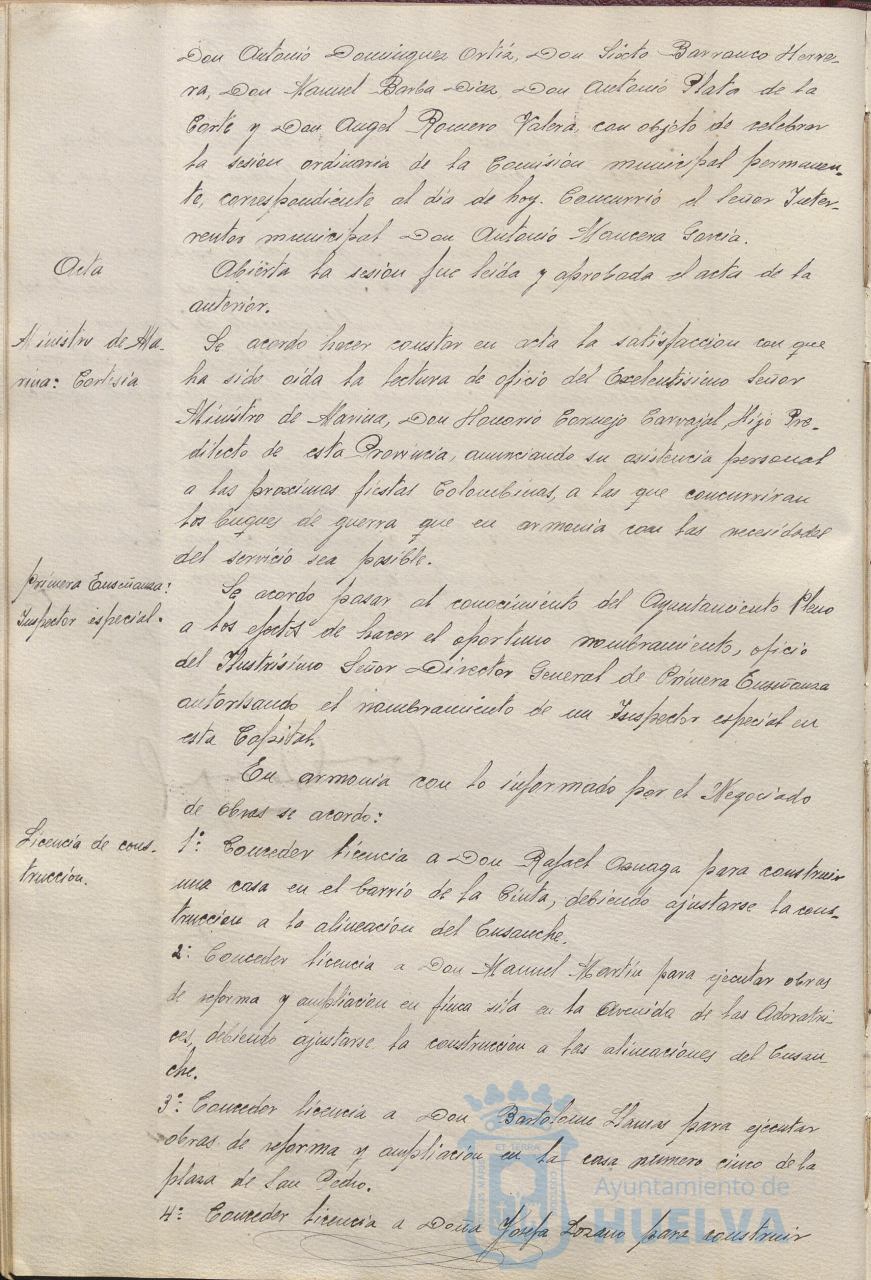 Don Antonio Dominguez Ortiz, Don Sixto Barranco Herre-
ra, Don Manuel Barba Diaz, Don Antonio Plata de la
Corte y Don Angel Romero Valera, con objeto de celebrar
la sesion ordinaria de la Comisión municipal permanen-
te, correspondiente al día de hoy. Concurrió el Señor Inter-
ventor municipal Don Antonio Mancera García.
Acta
Abierta la sesion fue leida y aprobada el acta de la
anterior.
Ministro de Ma-
rina: Cortesia
Se acordo hacer constar en acta la satisfaccion con que
ha sido oida la lectura de oficio del Excelentisimo Señor
Ministro de Marina, Don Honorio Cornejo Carvajal, Hijo Pre-
dilecto de esta Provincia, anunciando su asistencia personal
a las proximas fiestas Colombinas, a las que concurriran
los buques de guerra que en armonia con las necesidades
del servicio sea posible.
Primera Enseñanza:
Inspector especial.
Se acordo pasar al conocimiento del Ayuntamiento Pleno
a los efectos de hacer el oportuno nombramiento, oficio
del Ilustrisimo Señor Director General de Primera Enseñanza
autorisando el nombramiento de un Inspector especial en
esta Capital.
En armonia con lo informado por el Negociado
de obras se acordo:
Licencia de cons-
trucción.
1º: Conceder licencia a Don Rafael Osuaga para construir
una casa en el barrio de la Cinta, debiendo ajustarse la cons-
truccion a la alineación del Ensanche.
2º: Conceder licencia a Don Manuel Martín para ejecutar obras
de reforma y ampliacion en finca sita en la Avenida de las Adoratri-
ces, debiendo ajustarse la construccion a las alineaciones del Ensan
che.
3º: Conceder licencia a Don Bartolome Llamas para ejecutar
obras de reforma y ampliacion en la casa numero cinco de la
plaza de San Pedro.
4º: Conceder licencia a Doña Josefa Lozano para construir
Ayuntamiento de
HUELVA